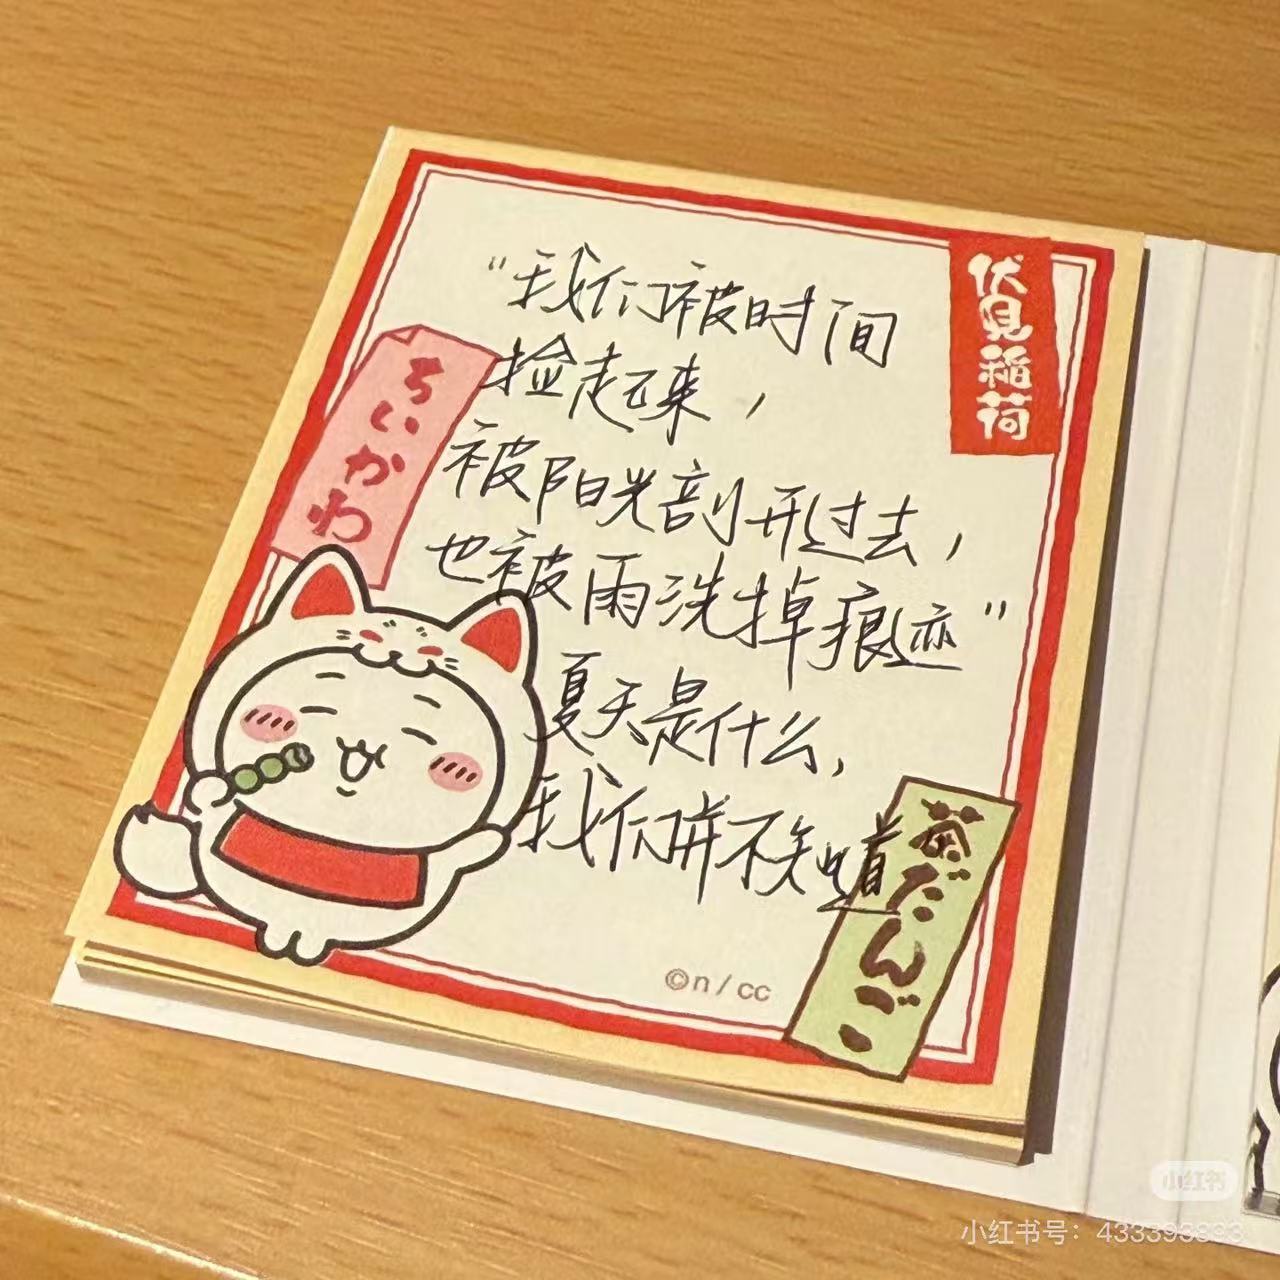 伏見稲荷
ちいかわ
“我们被时间
捡起来,
被阳光剖开过去,
也被雨洗掉痕迹”
夏天是什么,
我们并不知道
茶だんご
©n/cc
小红书
小红书号: